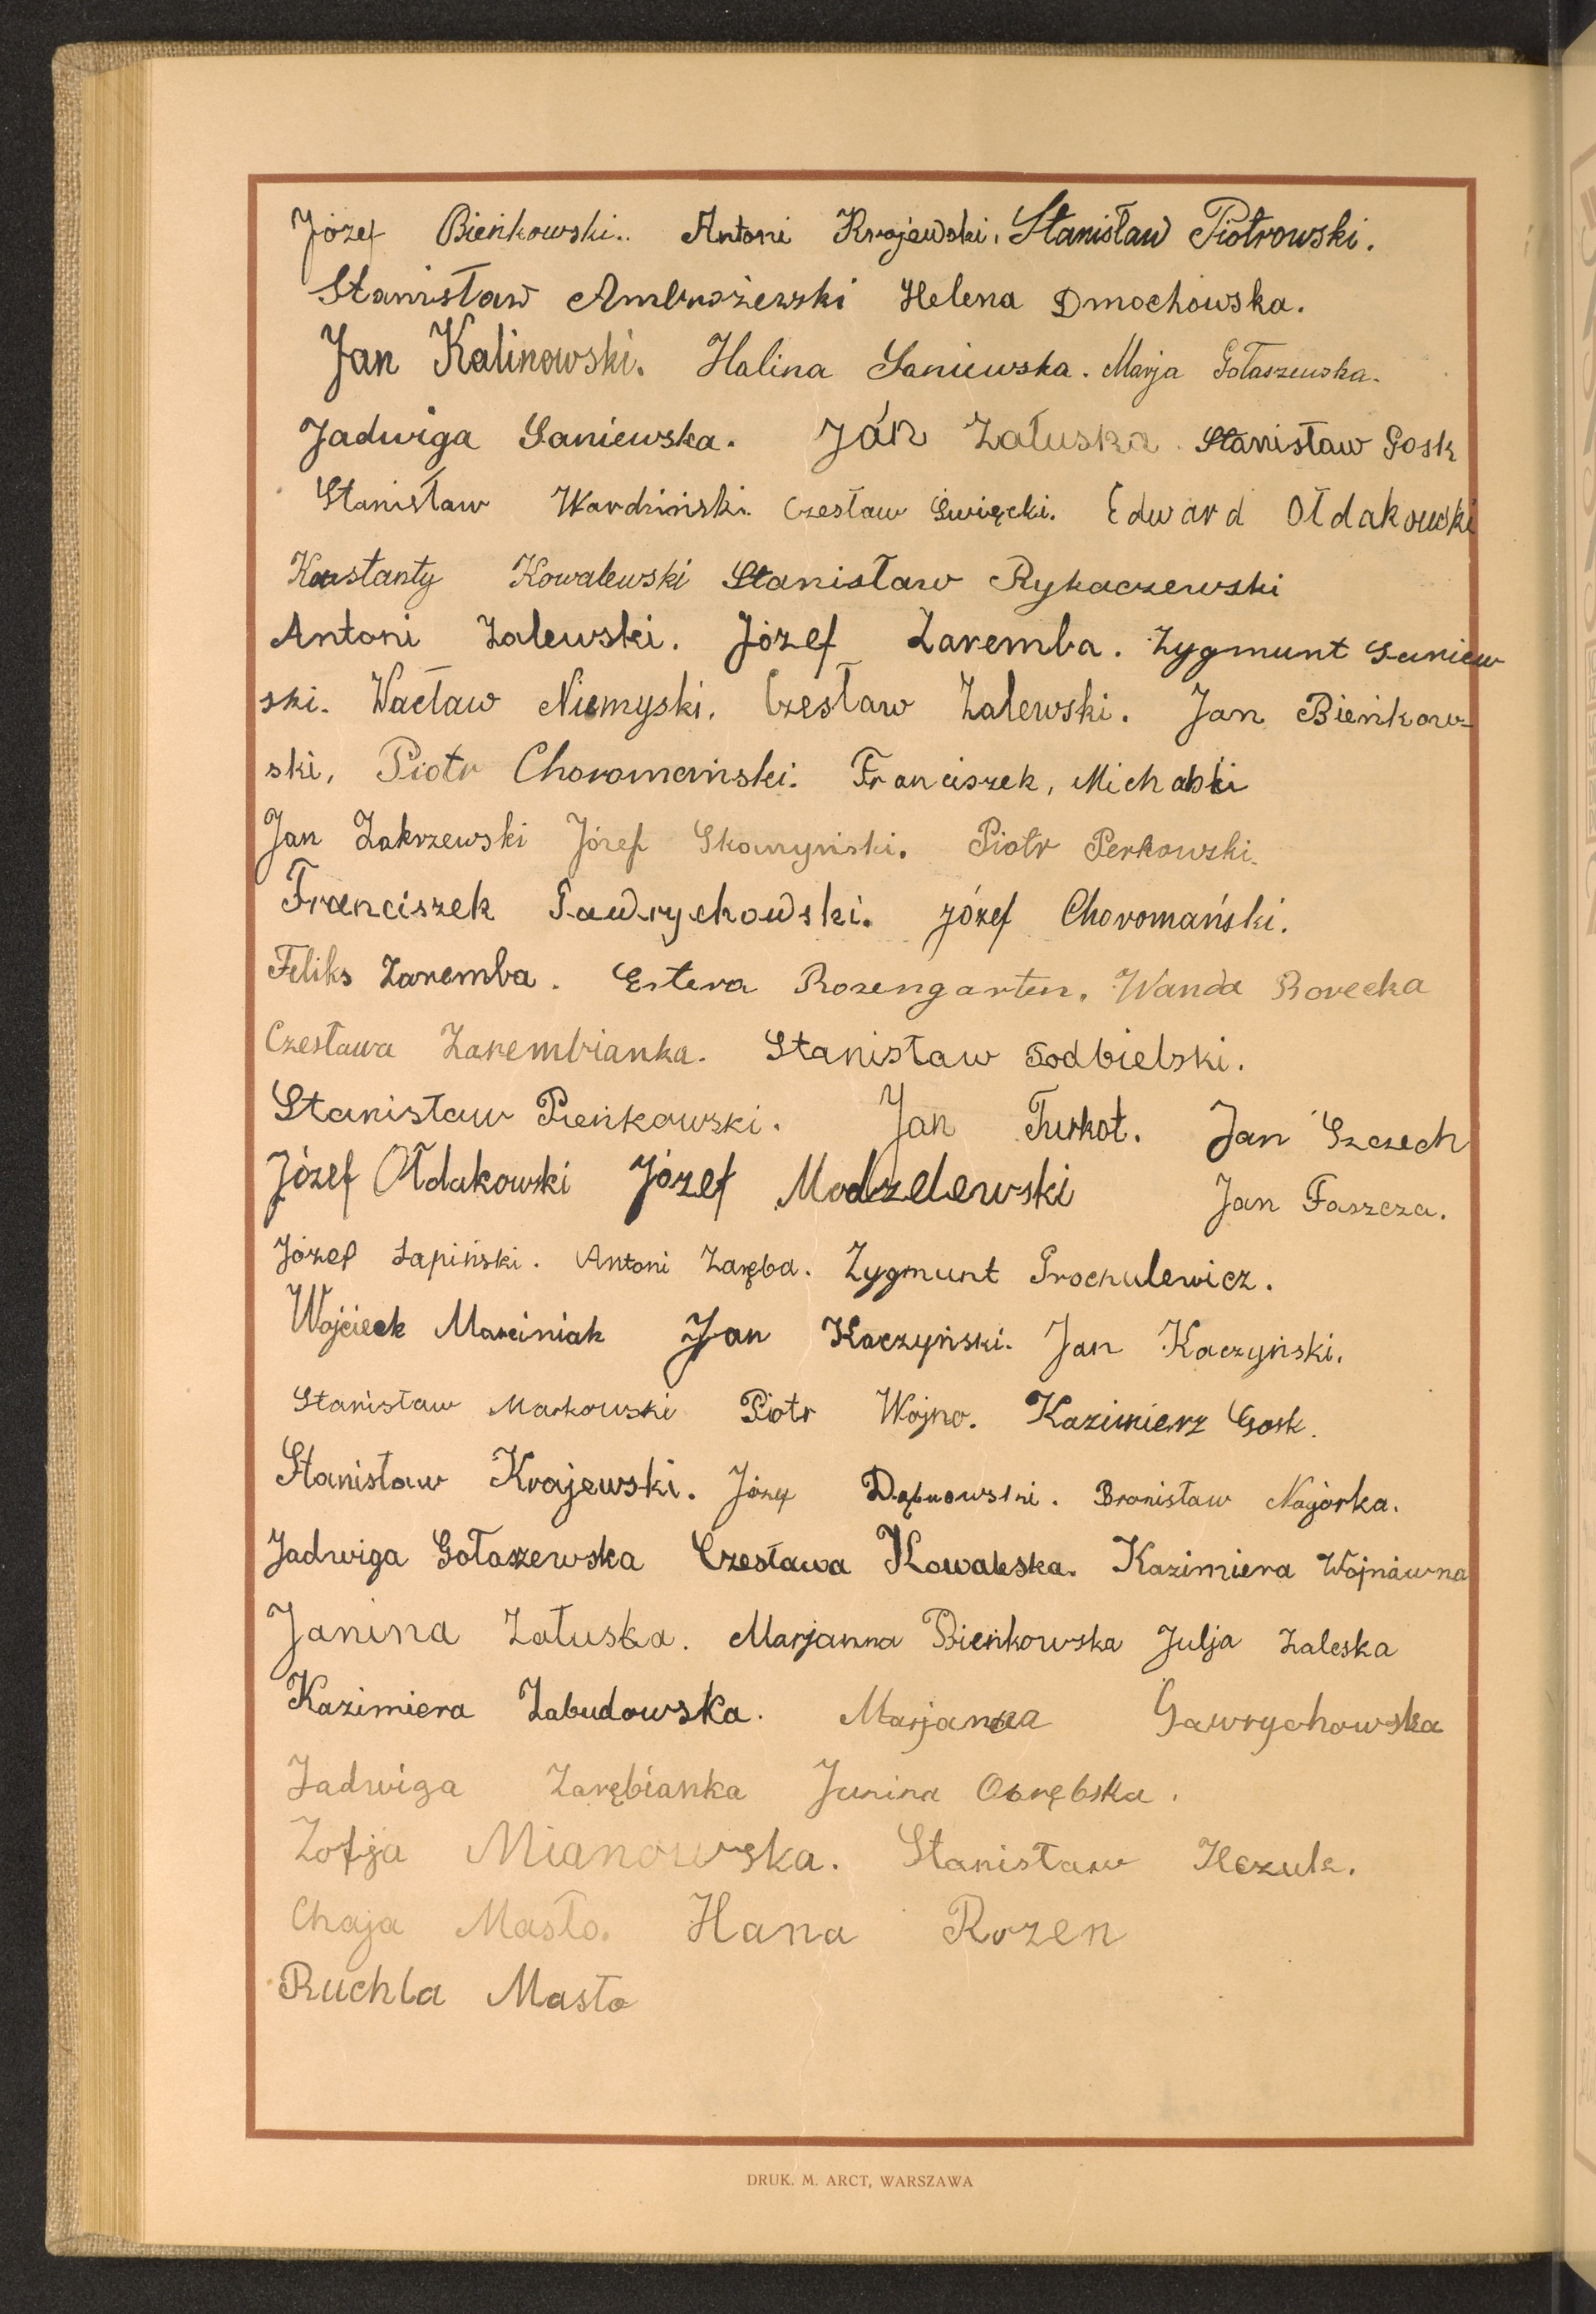 Józef Bieńkowski.. Antoni Krajewski. Stanisław Piotrowski.
Stanisław Ambrożewski Helena Dmochowska.
Jan Kalinowski. Halina Saniewska. Marja Gołaszewska.
Jadwiga Saniewska. Ján Załuska. Stanisław Gosk
Stanisław Wardziński. Czesław Święcki. Edward Ołdakowski
Konstanty Kowalewski Stanisław Rykaczewski
Antoni Zalewski. Józef Zaremba. Zygmunt Saniew
ski. Wacław Niemyski. Czesław Zalewski. Jan Bieńkow-
ski, Piotr Choromański. Franciszek, Michalski
Jan Zakrzewski Józef Skarzyński. Piotr Perkowski.
Franciszek Gawrychowski. Józef Choromański.
Feliks Zaremba. Estera Rozengarten. Wanda Borecka
Czesława Zarembianka. Stanisław Podbielski.
Stanisław Pieńkowski. Jan Turkot. Jan Szczech
Józef Ołdakowski Józef Modzelewski Jan Faszcza.
Józef Łapiński. Antoni Zaręba. Zygmunt Prochulewicz.
Wojciech Marciniak Jan Kaczyński. Jan Kaczyński.
Stanisław Markowski Piotr Wojno. Kazimierz Gosk.
Stanisław Krajewski. Józef Dąbrowski. Bronisław Nagórka.
Jadwiga Gołaszewska Czesława Kowaleska. Kazimiera Wojnówna
Janina Załuska. Marjanna Bieńkowska Julja Zaleska
Kazimiera Zabudowska. Marjanna Gawrychowska
Jadwiga Zarębianka Janina Obrębska.
Zofja Mianowska. Stanisław
Chaja Masło. Hana Rozen
Ruchla Masło
DRUK. M. ARCT, WARSZAWA